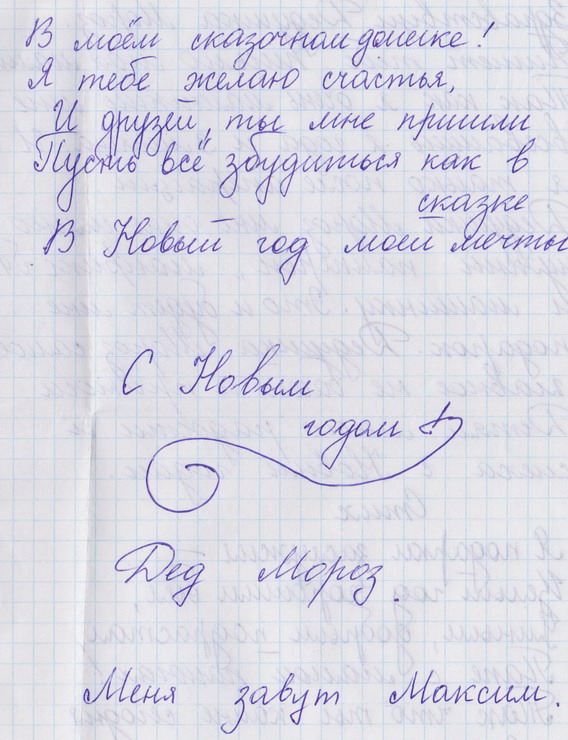 В моём сказочном домике!
Я тебе желаю счастья,
И друзей, ты мне пришли
Пусть всё збудиться как в
сказке
В Новый год моей мечты
С Новым
годом
Дед Мороз.
Меня завут Максим.